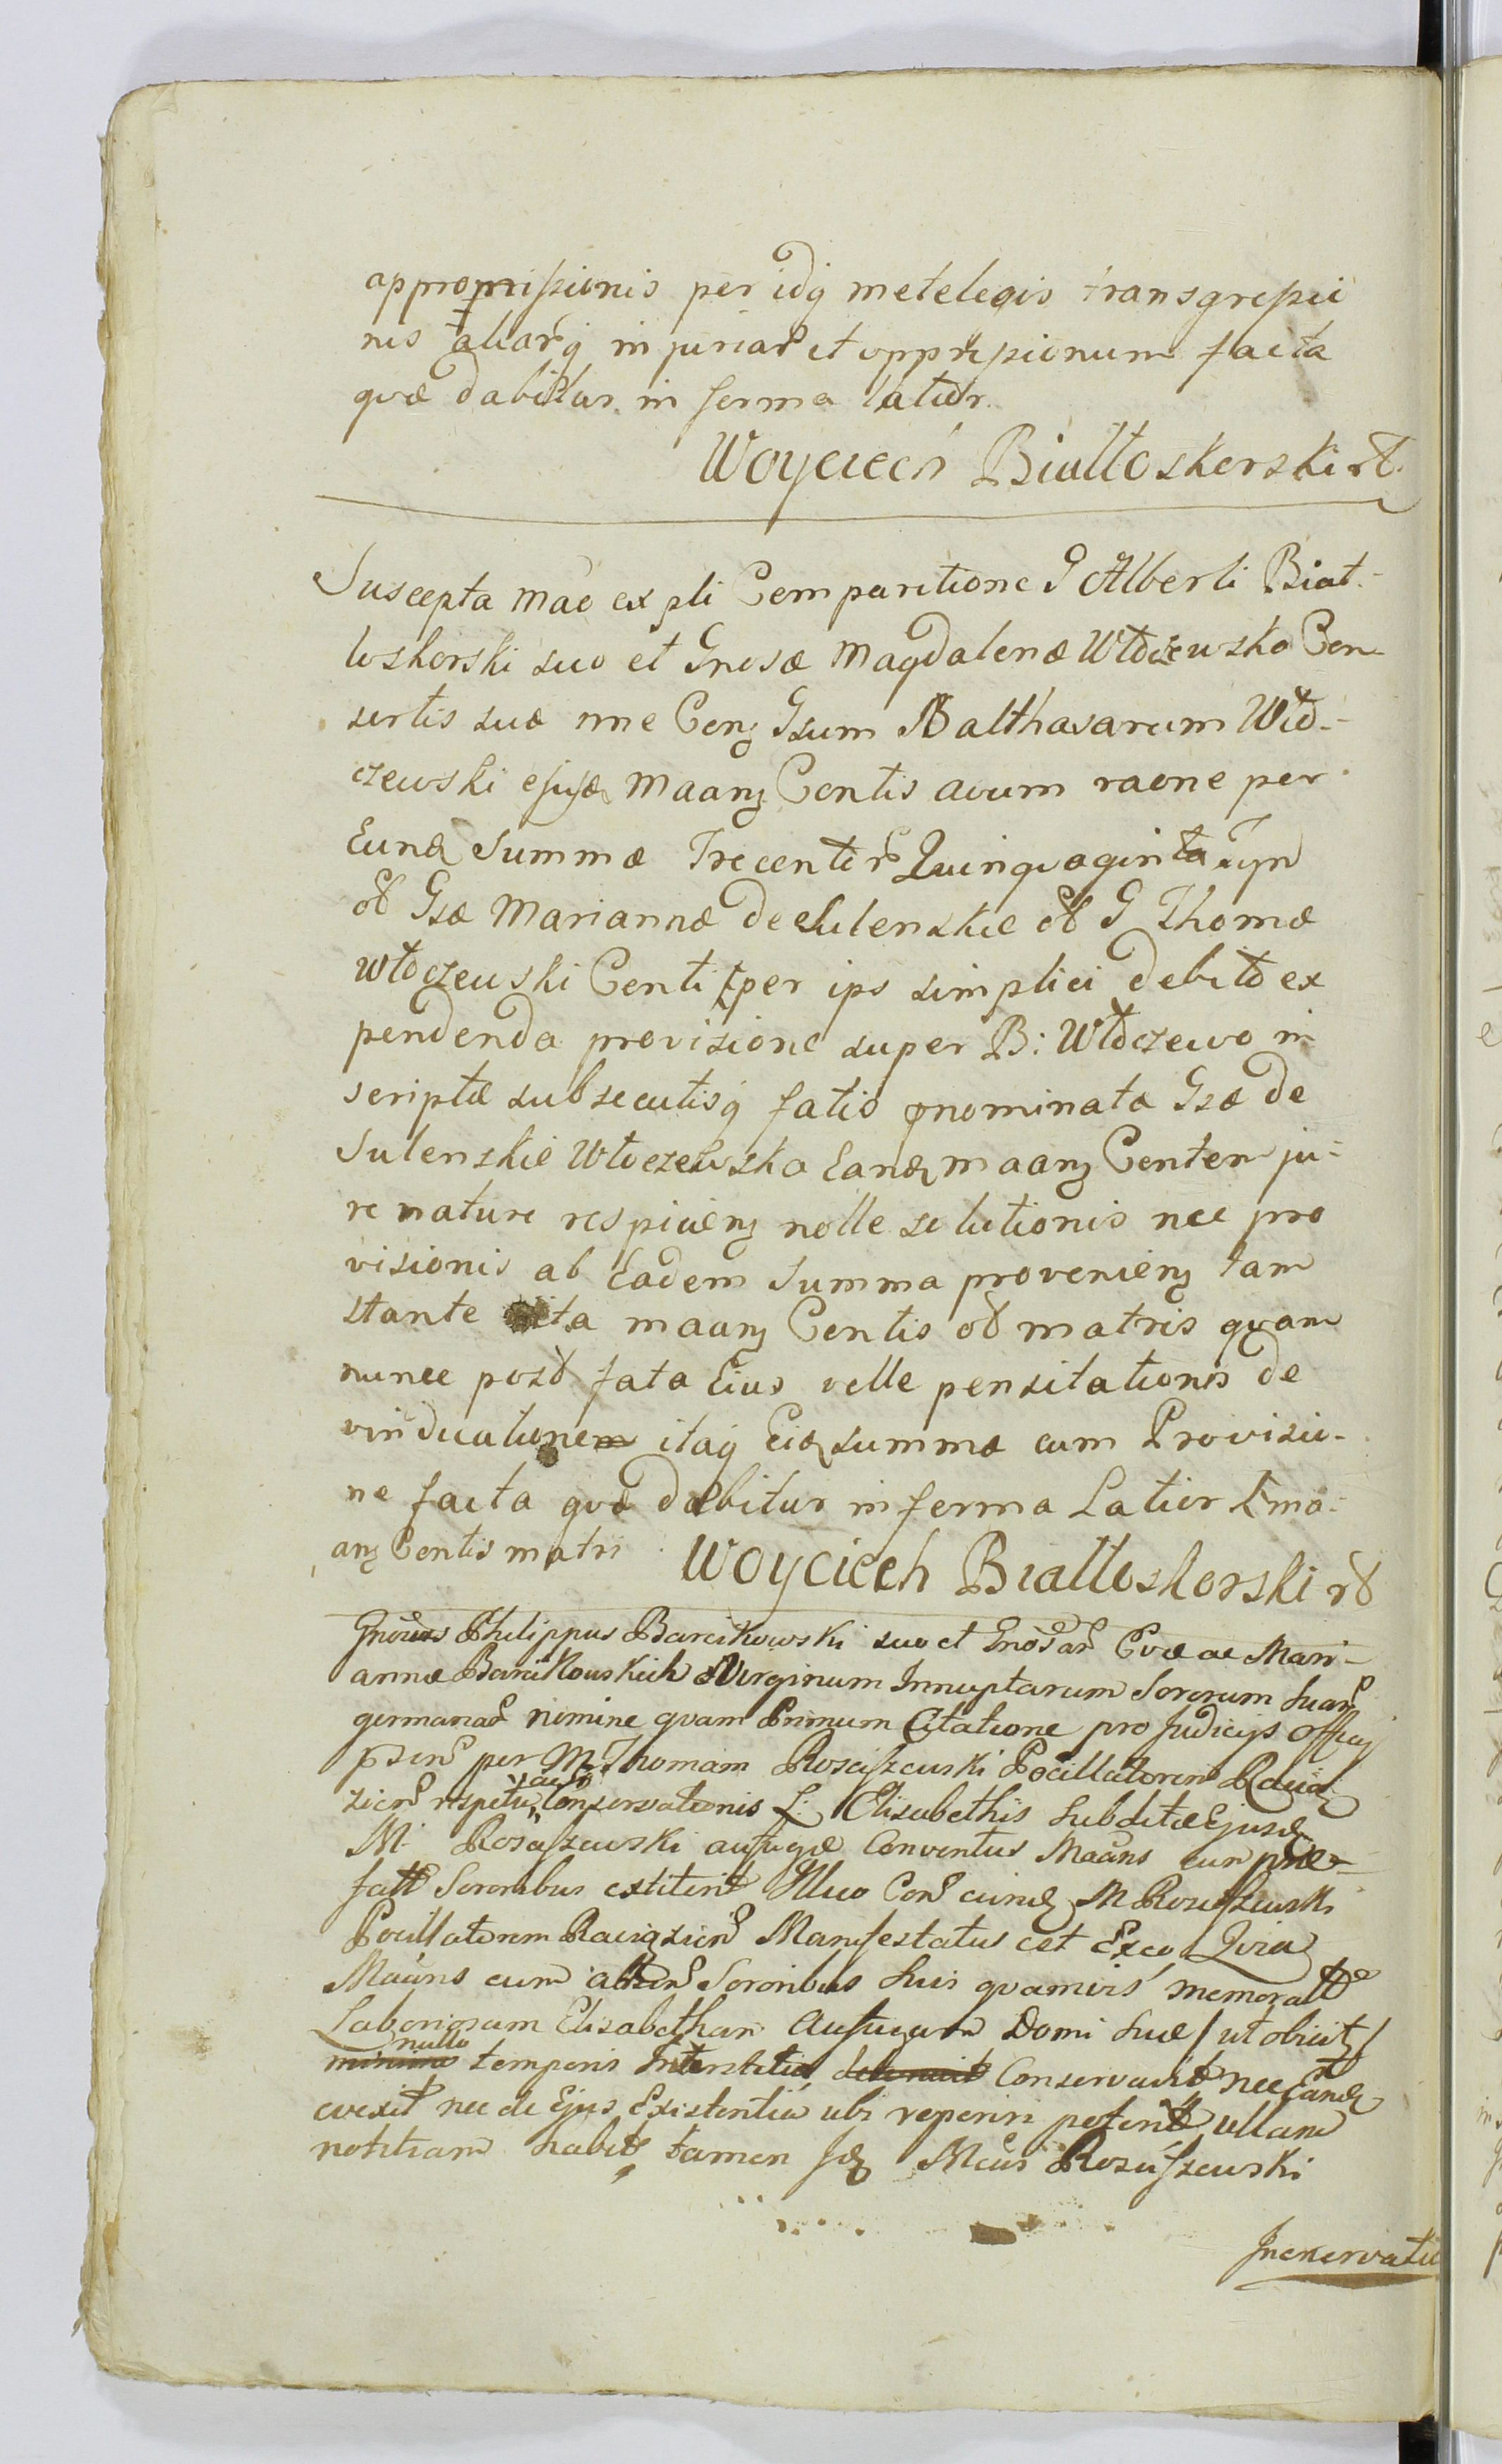 appromissionis per idq metelegis transgressio
nis aliarq injuriar et oppressionum facta
quæ dabitur in forma latior
Woyciech Białłoskorski
Suscepta mae ex pli Comparitione G Alberti Biał-
łoskorski suo et Gnosæ Magdalenæ Włoczewska Con
sortis suæ nne Conz Gsum Balthasarum Wło-
czewski Maanz Contis avum raone per
Eund Summæ Trecentor Quinquaginta
Gsæ Mariannæ de Sulenskie G Thomæ
Włoczewski Centi per ips simplici debito ex
pendenda provisione super B: Włoczewo in
scriptæ subsecutisq fatis nominatæ Gsæ de
Sulenskie Włoczewska Eand maanz Conten ju-
re nature respicienz nolle solutionis nec pro
visionis ab Eadem Summa provenienz tam
stante vita maanz Contis matris quam
nunc post fata Eius velle pensitationis de
vindicatione itaq Eid summæ cum Provisio-
ne facta quæ dabitur in forma Latior ma-
anz Contis matri Woyciech Białłoskorski
Philippus Barcikowski suo et Gnosar Evæ ac Mari-
annæ Barcikowskich Virginum Innuptarum Sororum Suar
germanar nomine quam Primum Citatione pro Judicijs Officij
per M Thomam Rosciszewski Pocillatorem
Conservationis L: Elisabethis Subditæ Ejusd
M: Rosciszewski aufugæ Conventus Maans cum præ-
fatt Sororibus extiterit Illico Con eund M Rosciszewski
Pocillatorem Manifestatus est Exeo Quia
Maans cum Sororibus Suis quamvis memoratt
Laboriosam Elisabetham Aufugam Domi Suæ / ut obicit /
nullo temporis Interstitio Conservavit nec Eand
evexit nec de Ejus Existentia ubi reperiri poterit ullam
notitiam habet tamen Id Mcus Rosciszewski